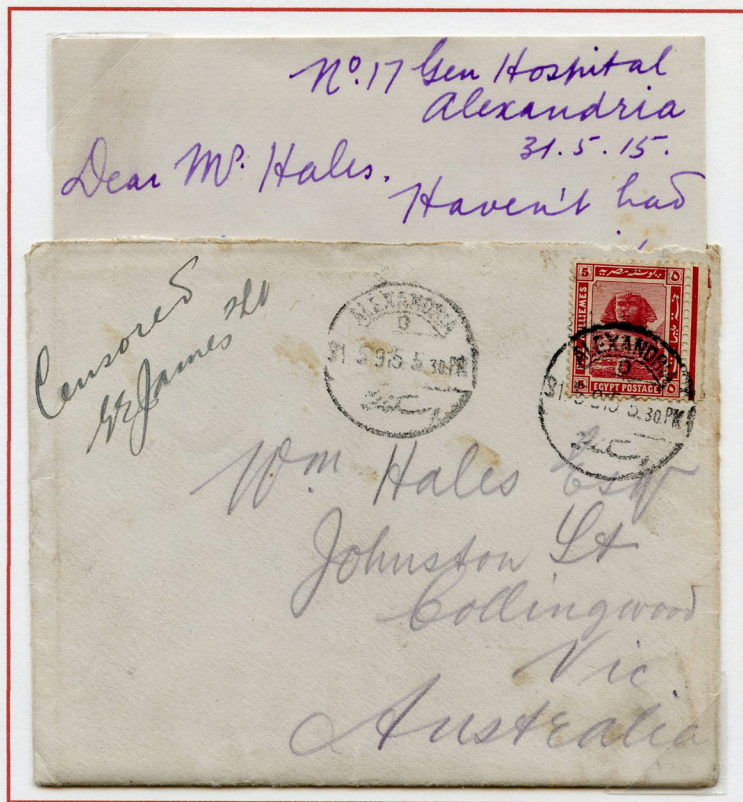 No. 17 Gen Hospital
Alexandria
31.5.15.
Dear Mr. Hales.
Haven't had
Censored
James
ALEXANDRIA
D
31 5 915 5.30 PM
5 بوستة مصرية ٥
MILLIEMES
EGYPT POSTAGE
ALEXANDRIA
D
31 5 915 5.30 PM
Wm Hales Esq
Johnston St
Collingwood
Vic
Australia